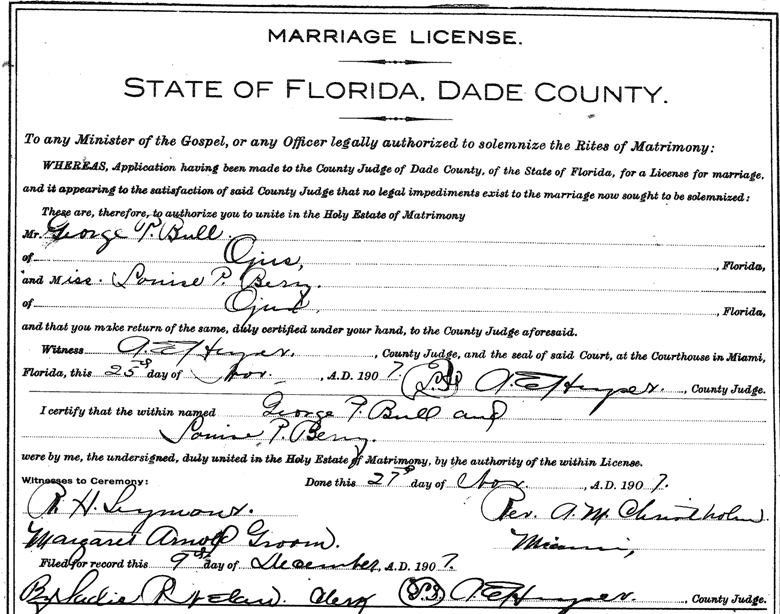 MARRIAGE LICENSE.
STATE OF FLORIDA, DADE COUNTY.
To any Minister of the Gospel, or any Officer legally authorized to solemnize the Rites of Matrimony:
WHEREAS, Application having been made to the County Judge of Dade County, of the State of Florida, for a License for marriage,
and it appearing to the satisfaction of said County Judge that no legal impediments exist to the marriage now sought to be solemnized:
These are, therefore, to authorize you to unite in the Holy Estate of Matrimony
Mr. George T. Bull.
of Ojus, , Florida,
and Miss. Louise P. Berry.
of Ojus. , Florida,
and that you make return of the same, duly certified under your hand, to the County Judge aforesaid.
Witness A. E. Heyser. , County Judge, and the seal of said Court, at the Courthouse in Miami,
Florida, this 25th day of Nov. , A.D. 1907. A. E. Heyser. , County Judge.
I certify that the within named George T. Bull and
Louise P. Berry.
were by me, the undersigned, duly united in the Holy Estate of Matrimony, by the authority of the within License.
Witnesses to Ceremony: Done this 27th day of Nov. , A.D. 1907.
R. H. Seymour. Rev. A. M.
Margaret Arnold Groom. Miami,
Filed for record this 9th day of December, A.D. 1907.
By Sadie R. Clerk A. E. Heyser. County Judge.